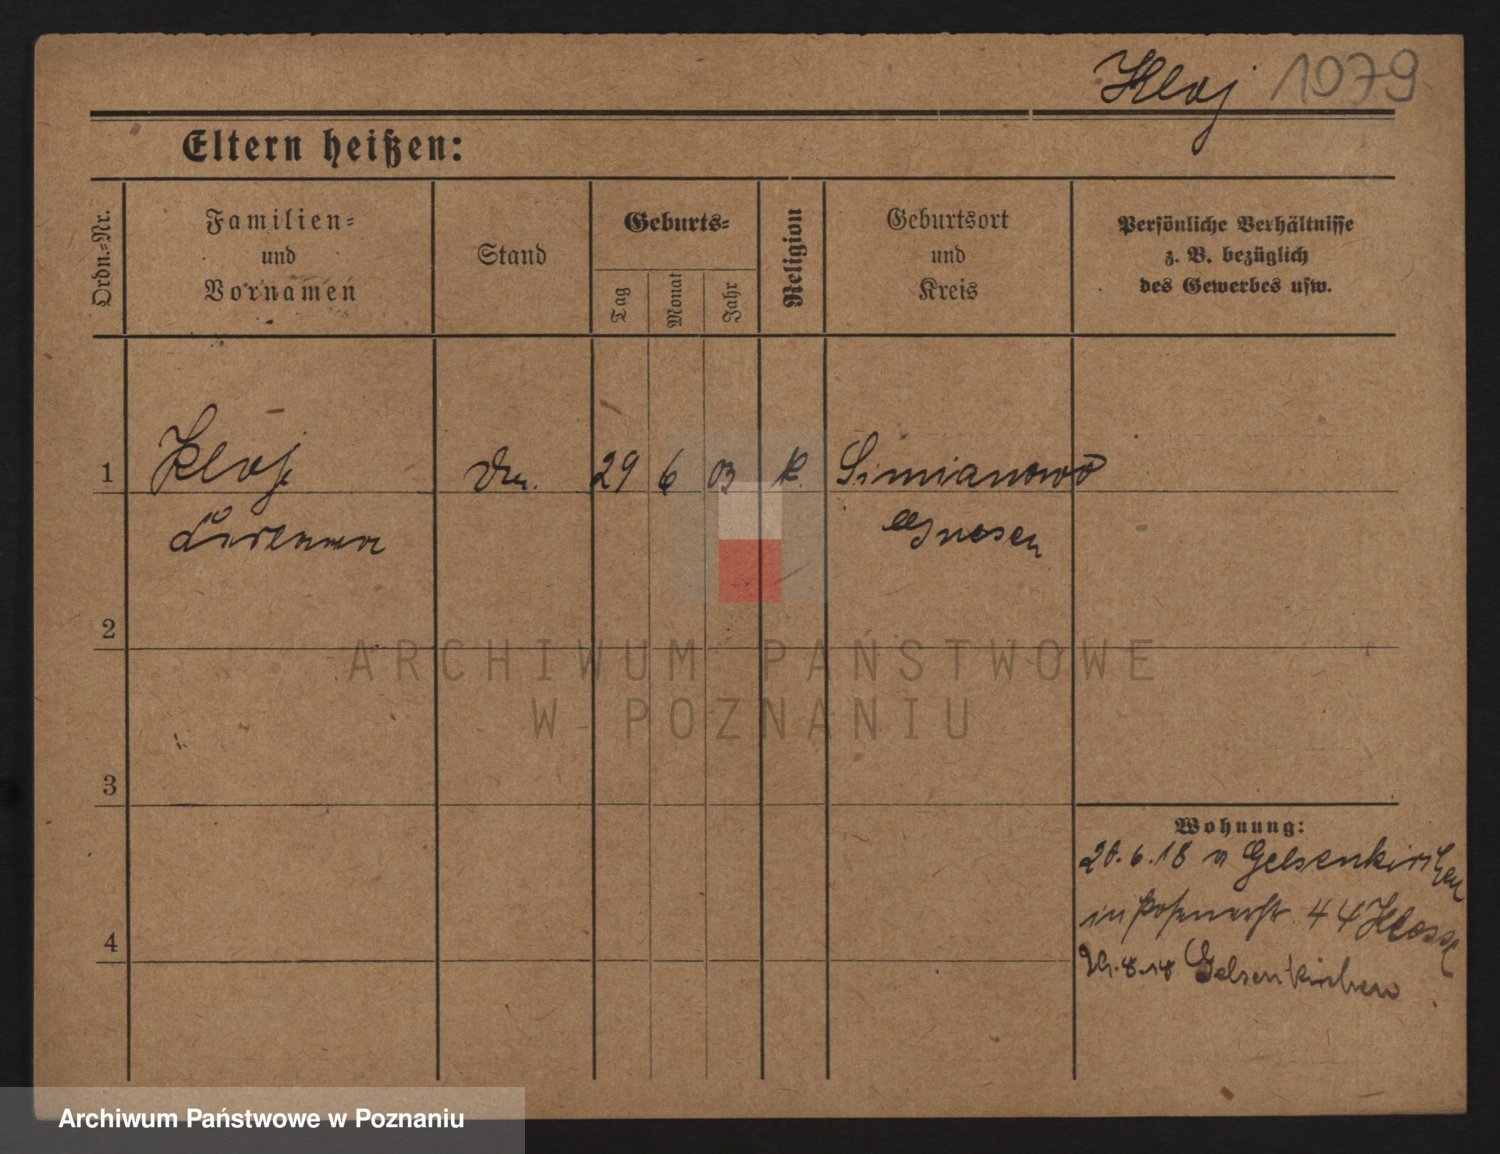 Kloj 1079
Eltern heißen:
Ordn.=Nr.
Familien=
und
Vornamen
Stand
Geburts=
Tag
Monat
Jahr
Religion
Geburtsort
und
Kreis
Persönliche Verhältnisse
z. B. bezüglich
des Gewerbes usw.
1
29 6 03 k. Simianowo
Gnesen
2
3
4
Wohnung:
20.6.18 v Gelsenkirchen
in 44
29.8.18 Gelsenkirchen
ARCHIWUM PAŃSTWOWE
W POZNANIU
Archiwum Państwowe w Poznaniu